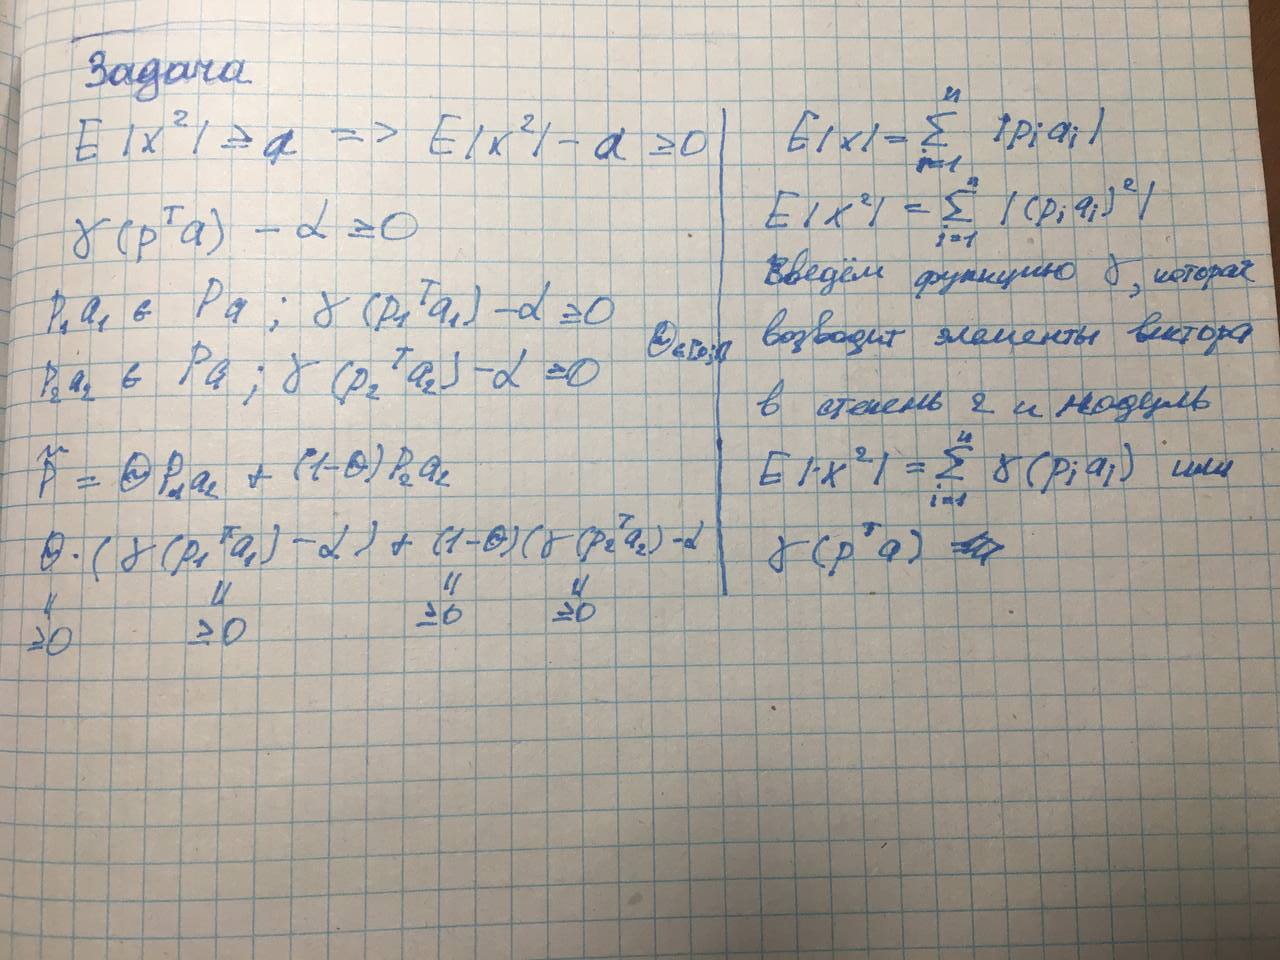 Задача
E|x²| ≥ α => E|x²| - α ≥ 0
γ(pᵀa) - α ≥ 0
P₁a₁ ∈ Pa ; γ(p₁ᵀa₁) - α ≥ 0
P₂a₂ ∈ Pa ; γ(p₂ᵀa₂) - α ≥ 0
Θ∈[0;1]
P̃ = Θ P₁a₂ + (1-Θ)P₂a₂
Θ·(γ(p₁ᵀa₁) - α) + (1-Θ)(γ(p₂ᵀa₂) - α
≥0 ≥0 ≥0 ≥0
E|x| = ∑ⁿᵢ₌₁ |pᵢaᵢ|
E|x²| = ∑ⁿᵢ₌₁ |(pᵢaᵢ)²|
Введём функцию γ, которая
возводит элементы вектора
в степень 2 и модуль
E|x²| = ∑ⁿᵢ₌₁ γ(pᵢaᵢ) или
γ(pᵀa)